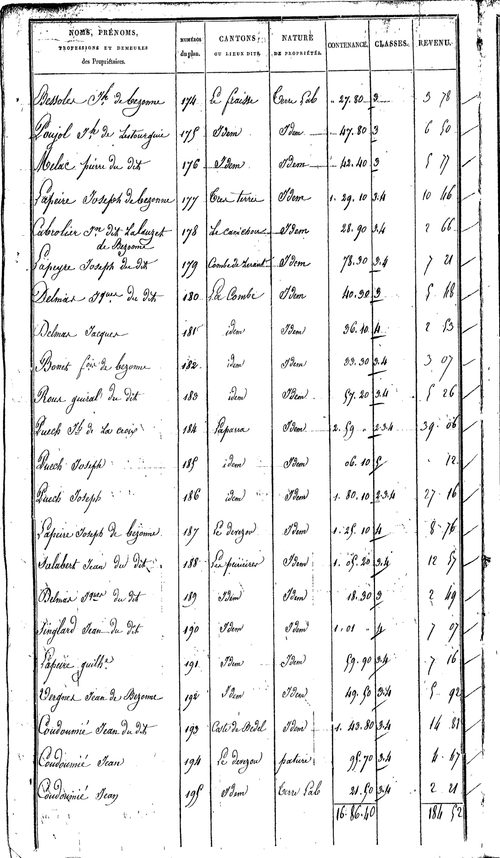 NOMS, PRÉNOMS, PROFESSIONS ET DEMEURES des Propriétaires. NUMÉROS du plan. CANTONS OU LIEUX DITS. NATURE DE PROPRIÉTÉS. CONTENANCE. CLASSES. REVENU.
Bessoles Jh de bezonne 174 Le fraisse Terre Lab 27.80 3 3 78
Poujol Jh de Lestourguie 175 Idem Idem 47.80 3 6 50
Melac pierre du dit 176 Idem Idem 42.40 3 5 77
Lapeire Joseph de bezonne 177 Idem 1.29.10 3.4 10 46
Cabrolier dit de Bezonne 178 Idem 28.90 3.4 2 66
Lapeyre Joseph du dit 179 Combe de Idem 78.30 3.4 7 21
Delmas Jques du dit 180 La Combe Idem 40.30 3 5 48
Delmas Jacques 181 idem Idem 36.10 4 2 53
Bonet fois de bezonne 182 idem Idem 33.30 3.4 3 07
Roux guiral du dit 183 idem Idem 57.20 3.4 5 26
Puech Jh de La croix 184 Laparra Idem 2.59 2.3.4 39 06
Puech Joseph 185 idem Idem 06.10 5 . 12
Puech Joseph 186 idem Idem 1.80.10 2.3.4 27 16
Lapeire Joseph de bezonne 187 Le devezou Idem 1.25.10 4 8 76
Salabert Jean du dit 188 Idem 1.05.20 3.4 12 57
Delmas Jques du dit 189 Idem Idem 18.30 3 2 49
Singlard Jean du dit 190 Idem Idem 1.01 4 7 07
Lapeire guilhe 191 Idem Idem 59.90 3.4 7 16
Vergnes Jean de Bezonne 192 Idem Idem 49.50 3.4 5 92
Coudoumié Jean du dit 193 Coste de Bedel Idem 1.43.80 3.4 14 81
Coudoumié Jean 194 Le devezou pature 95.70 3.4 4 67
Coudoumié Jean 195 Idem Terre Lab 21.50 3.4 2 21
16.86.40 184 52